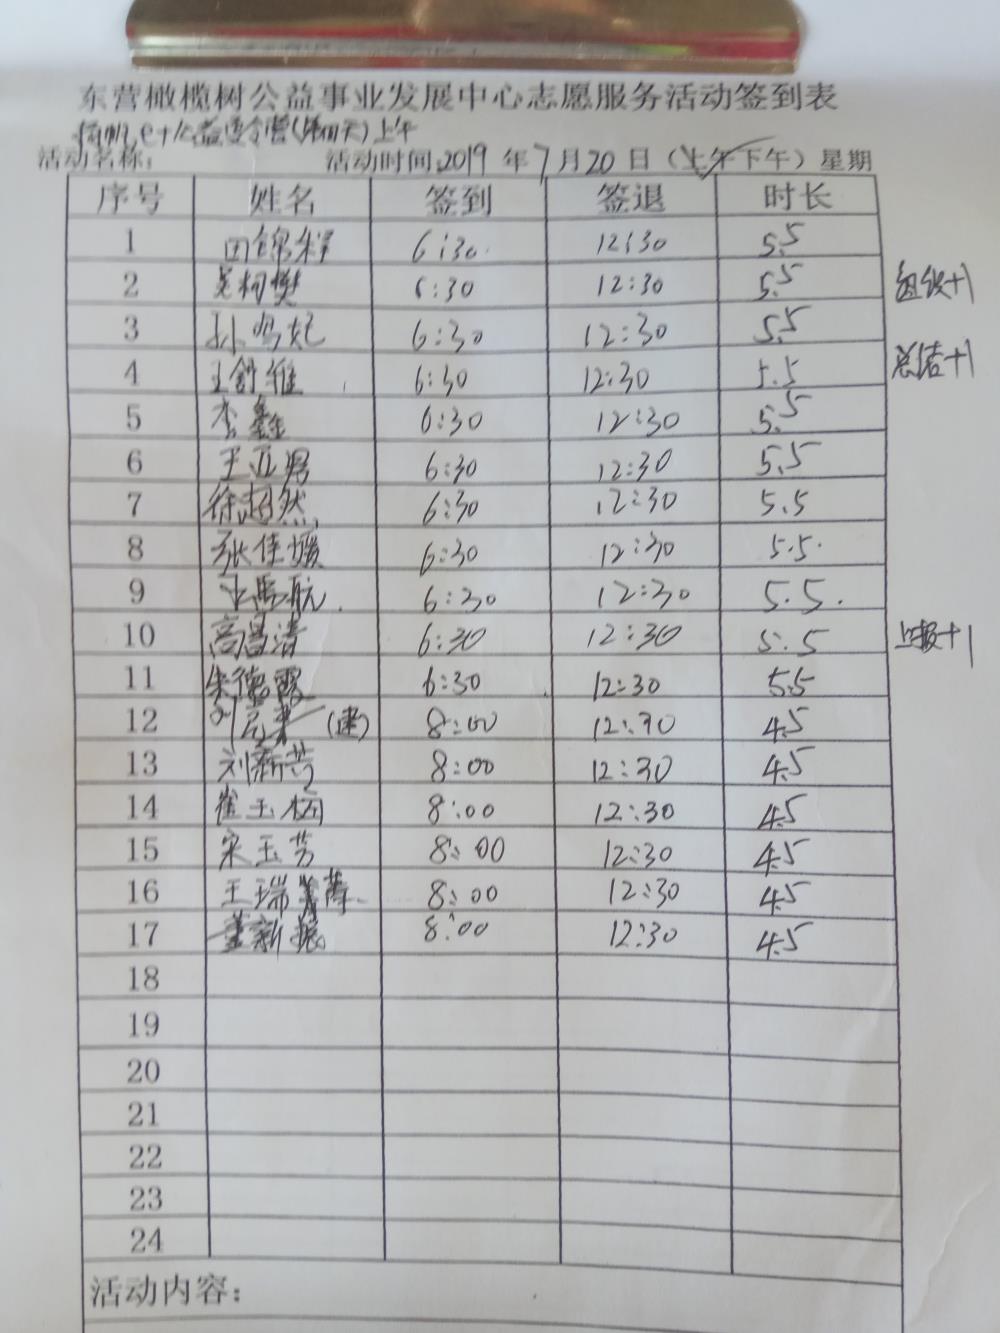 东营橄榄树公益事业发展中心志愿服务活动签到表
公益夏令营(第四天)上午
活动名称: 活动时间:2019年7月20日(上午下午)星期
序号 姓名 签到 签退 时长
1 田锦 6:30 12:30 5.5
2 吴柯樊 6:30 12:30 5.5 组织+1
3 孙鸣妃 6:30 12:30 5.5
4 王舒维 6:30 12:30 5.5 总结+1
5 李鑫 6:30 12:30 5.5
6 王亚男 6:30 12:30 5.5
7 徐超然 6:30 12:30 5.5
8 张佳媛 6:30 12:30 5.5
9 航 6:30 12:30 5.5
10 高昌清 6:30 12:30 5.5 上报+1
11 朱德霞 6:30 12:30 5.5
12 8:00 12:30 4.5
13 刘新芳 8:00 12:30 4.5
14 崔玉 8:00 12:30 4.5
15 宋玉芳 8:00 12:30 4.5
16 王瑞萍 8:00 12:30 4.5
17 董新振 8:00 12:30 4.5
18
19
20
21
22
23
24
活动内容: